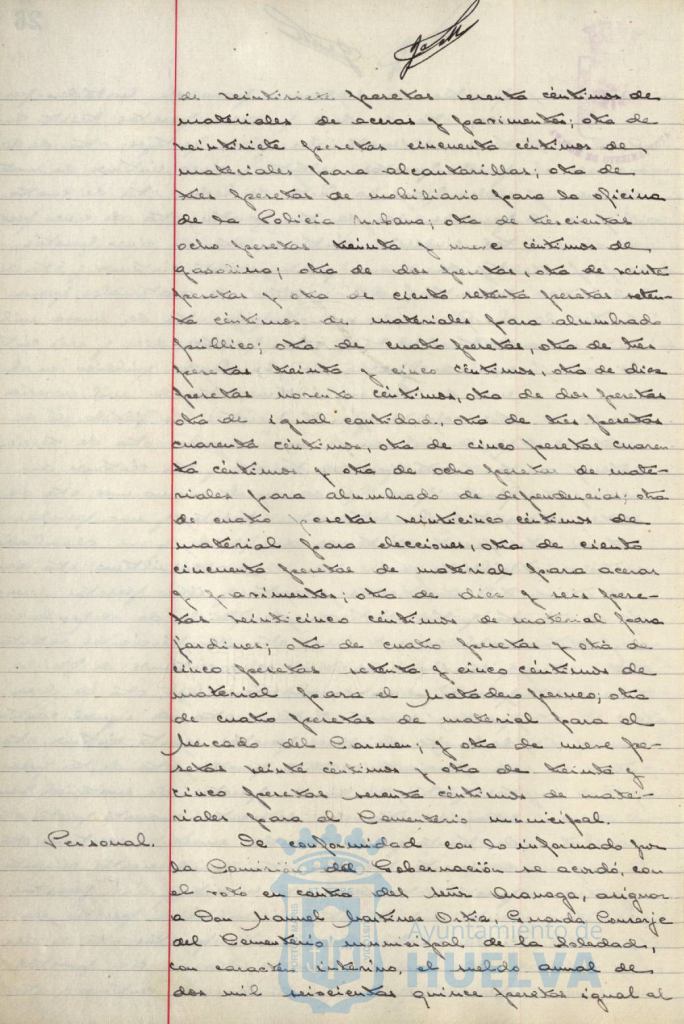 de veintisiete pesetas sesenta céntimos de
materiales de aceras y pavimentos; otra de
veintisiete pesetas cincuenta céntimos de
materiales para alcantarillas; otra de
tres pesetas de mobiliario para la oficina
de la Policía Urbana; otra de trescientas
ocho pesetas treinta y nueve céntimos de
gasolina; otra de dos pesetas, otra de veinte
pesetas y otra de ciento setenta pesetas seten-
ta céntimos de materiales para alumbrado
público; otra de cuatro pesetas, otra de tres
pesetas treinta y cinco céntimos, otra de diez
pesetas noventa céntimos, otra de dos pesetas
otra de igual cantidad, otra de tres pesetas
cuarenta céntimos, otra de cinco pesetas cuaren-
ta céntimos y otra de ocho pesetas de mate-
riales para alumbrado de dependencias; otra
de cuatro pesetas veinticinco céntimos de
material para elecciones, otra de ciento
cincuenta pesetas de material para aceras
y pavimentos; otra de diez y seis pese-
tas veinticinco céntimos de material para
jardines; otra de cuatro pesetas y otra de
cinco pesetas setenta y cinco céntimos de
material para el Matadero; otra
de cuatro pesetas de material para el
Mercado del Carmen; y otra de nueve pe-
setas veinte céntimos y otra de treinta y
cinco pesetas sesenta céntimos de mate-
riales para el Cementerio municipal.
Personal.
De conformidad con lo informado por
la Comisión de Gobernación se acordó, con
el voto en contra del señor, asignar
a Don Manuel Martínez Ortiz, Guarda Conserje
del Cementerio municipal de la Soledad,
con carácter interino, el sueldo anual de
dos mil seiscientas quince pesetas igual al
Ayuntamiento de
HUELVA